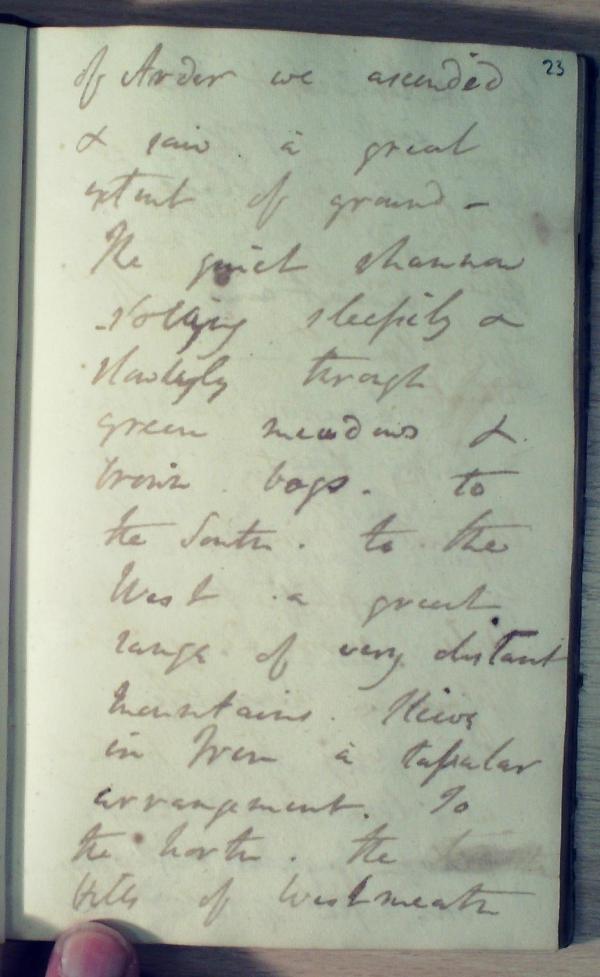 23
of Arder we ascended
& saw a great
extent of ground -
The quiet shannon
rolling sleepily &
slowly through
green meadows &
brown bogs. to
the South. to the
West a great
range of very distant
mountains.
in a tabular
arrangement. To
the north. the
hills of Westmeath